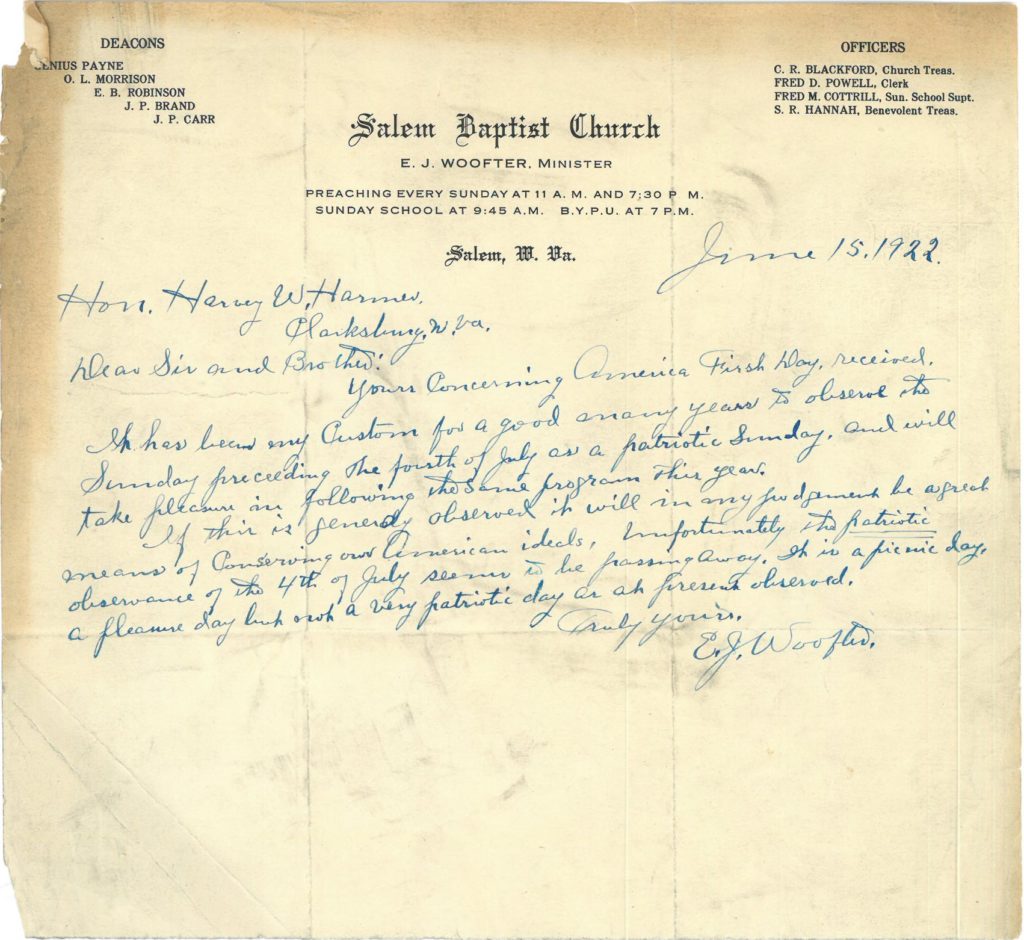 DEACONS
ENIUS PAYNE
O. L. MORRISON
E. B. ROBINSON
J. P. BRAND
J. P. CARR
OFFICERS
C. R. BLACKFORD, Church Treas.
FRED D. POWELL, Clerk
FRED M. COTTRILL, Sun. School Supt.
S. R. HANNAH, Benevolent Treas.
Salem Baptist Church
E. J. WOOFTER, MINISTER
PREACHING EVERY SUNDAY AT 11 A. M. AND 7:30 P M.
SUNDAY SCHOOL AT 9:45 A.M. B.Y.P.U. AT 7 P.M.
Salem, W. Va.
June 15, 1922.
Hon. Harvey W. Harmer,
Clarksburg, W. Va.
Dear Sir and Brother:
Yours Concerning America First Day, received.
It has been my Custom for a good many years to observe the
Sunday preceeding the fourth of July as a patriotic Sunday, and will
take pleasure in following the same program this year.
If this is generaly observed it will in my judgement be a great
means of Conserving our American ideals, Unfortunately the patriotic
observance of the 4th of July seems to be passing away. It is a picnic day,
a pleasure day but not a very patriotic day as at present observed.
Truly yours,
E. J. Woofter.